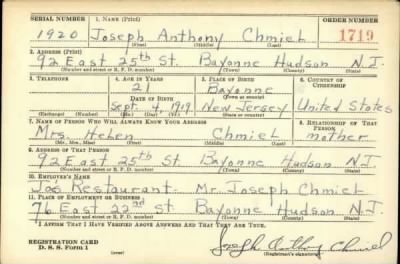 SERIAL NUMBER 1. NAME (Print) ORDER NUMBER
1920 Joseph Anthony Chmiel 1719
(First) (Middle) (Last)
2. ADDRESS (Print)
92 East 25th St. Bayonne Hudson N.J.
(Number and street or R. F. D. number) (Town) (County) (State)
3. TELEPHONE 4. AGE IN YEARS 5. PLACE OF BIRTH 6. COUNTRY OF CITIZENSHIP
21 Bayonne
DATE OF BIRTH (Town or county)
Sept. 4, 1919 New Jersey United States
(Exchange) (Number) (Mo.) (Day) (Yr.) (State or country)
7. NAME OF PERSON WHO WILL ALWAYS KNOW YOUR ADDRESS 8. RELATIONSHIP OF THAT PERSON
Mrs. Helen Chmiel mother
(Mr., Mrs., Miss) (First) (Middle) (Last)
9. ADDRESS OF THAT PERSON
92 East 25th St Bayonne Hudson N.J.
(Number and street or R. F. D. number) (Town) (County) (State)
10. EMPLOYER'S NAME
Jo's Restaurant- Mr. Joseph Chmiel
11. PLACE OF EMPLOYMENT OR BUSINESS
76 East 22nd St Bayonne Hudson N.J.
(Number and street or R. F. D. number) (Town) (County) (State)
I AFFIRM THAT I HAVE VERIFIED ABOVE ANSWERS AND THAT THEY ARE TRUE.
REGISTRATION CARD
D. S. S. Form 1
Joseph Anthony Chmiel
(Registrant's signature)